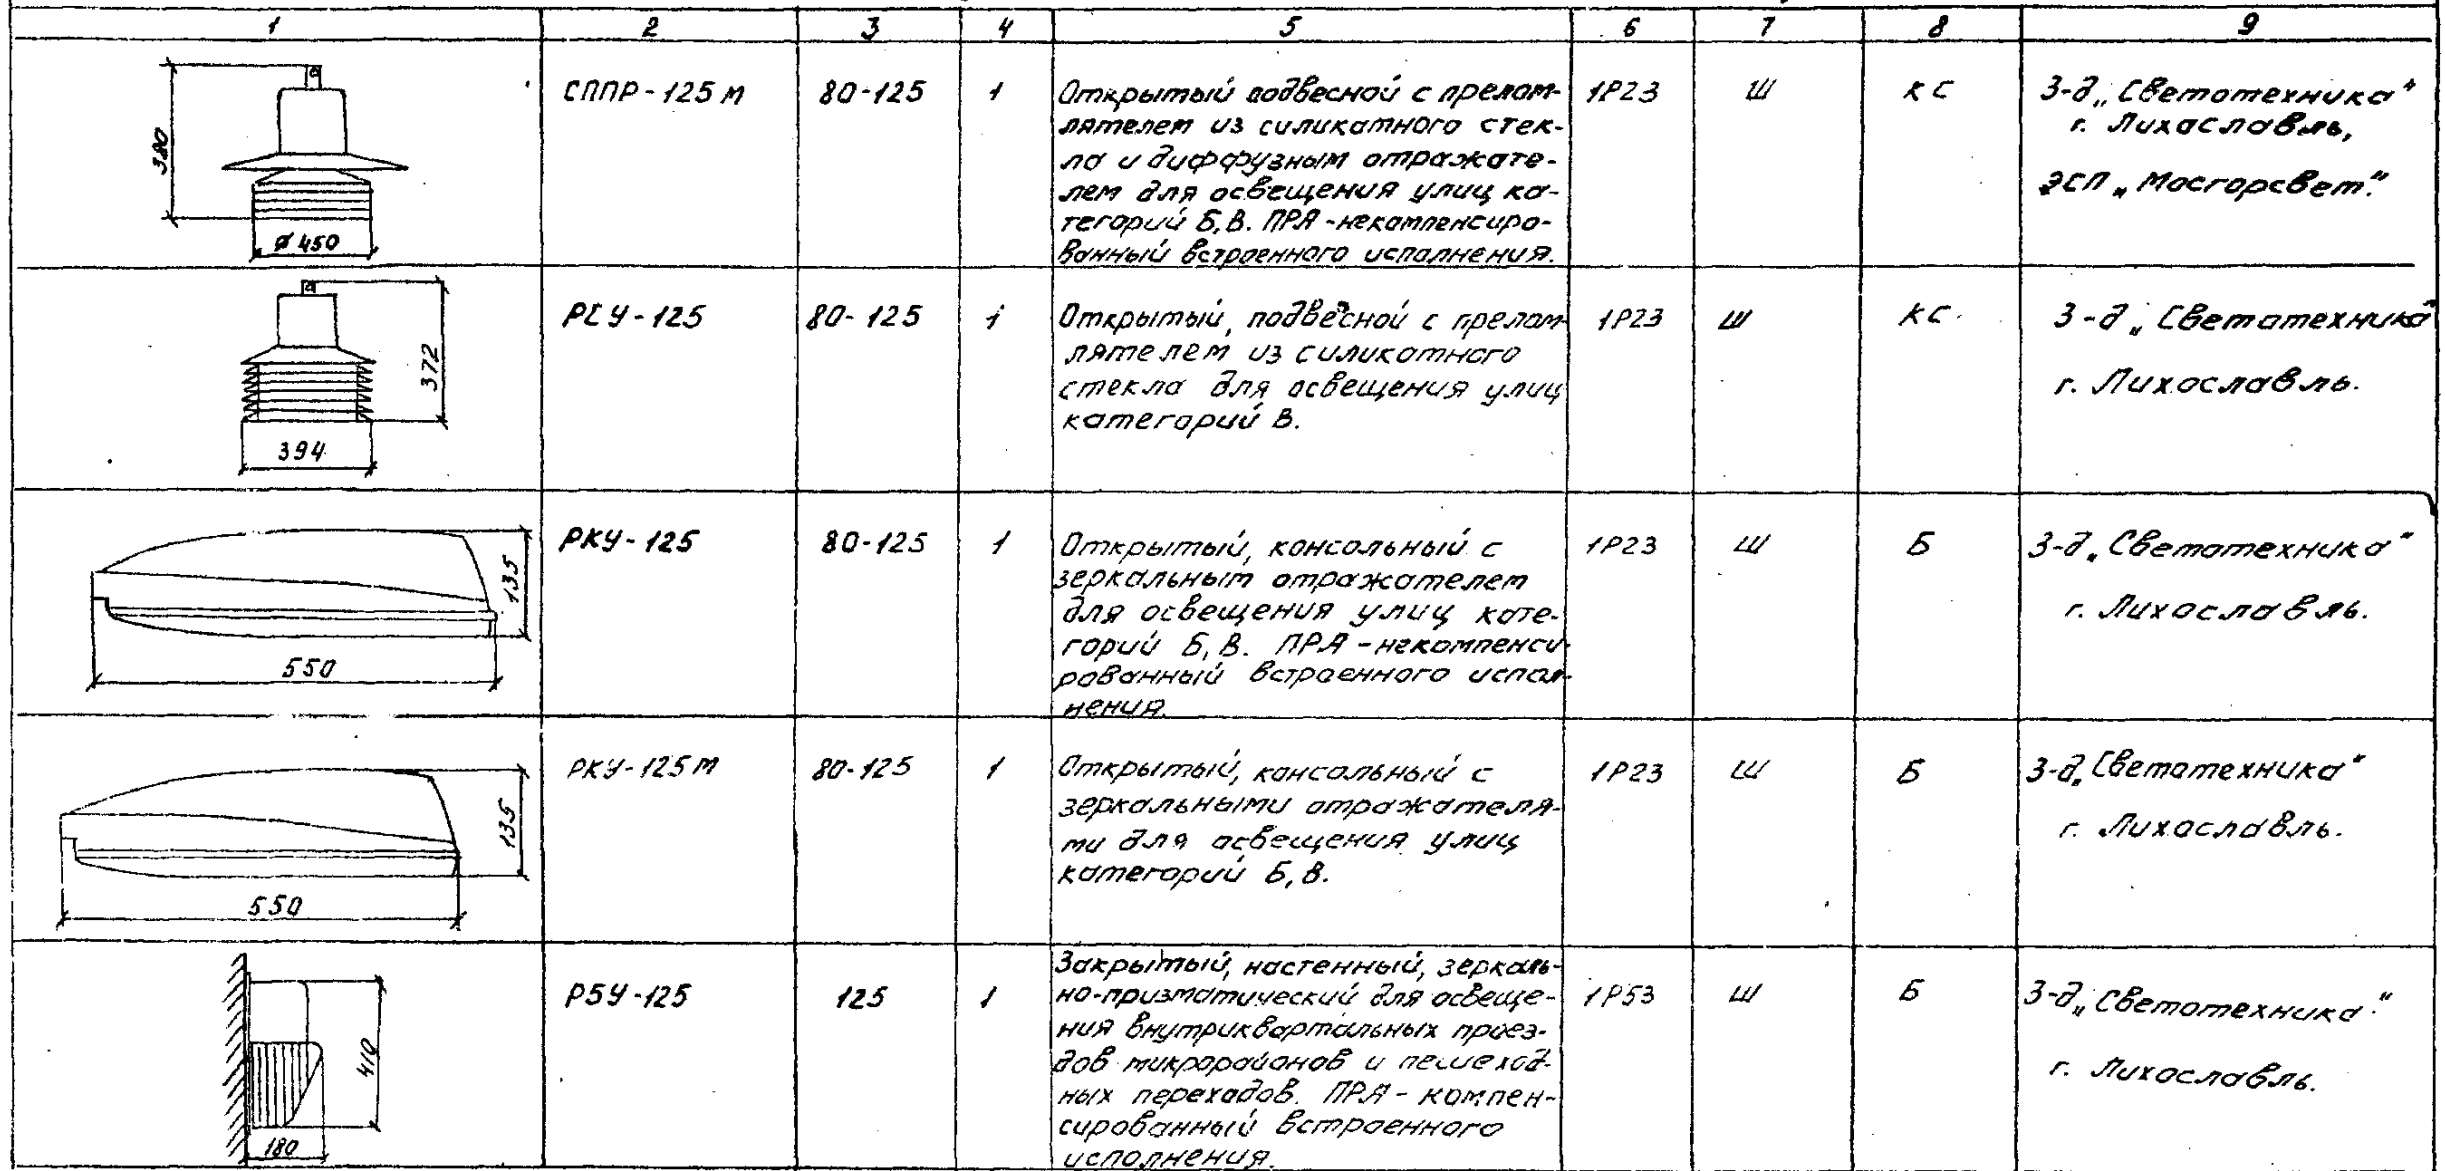 1 2 3 4 5 6 7 8 9
380
ø 450
СППР-125 м
80-125
1
Открытый подвесной с прелом-
лятелем из силикатного стек-
ла и диффузным отражате-
лем для освещения улиц ка-
тегорий Б, В. ПРА-некомпенсиро-
ванный встроенного исполнения.
1Р23
Ш
КС
З-д „Светотехника"
г. Лихославль,
ЭСП „Мосгорсвет".
372
394
РСУ-125
80-125
1
Открытый, подвесной с прелом-
лятелем из силикатного
стекла для освещения улиц
категорий В.
1Р23
Ш
КС.
З-д „Светотехника"
г. Лихославль.
135
550
РКУ-125
80-125
1
Открытый, консольный с
зеркальным отражателем
для освещения улиц кате-
горий Б, В. ПРА-некомпенси-
рованный встроенного испол-
нения.
1Р23
Ш
Б
З-д „Светотехника"
г. Лихославль.
135
550
РКУ-125 м
80-125
1
Открытый, консольный с
зеркальными отражателя-
ми для освещения улиц
категорий Б, В.
1Р23
Ш
Б
З-д „Светотехника"
г. Лихославль.
410
180
РБУ-125
125
1
Закрытый, настенный, зеркаль-
но-призматический для освеще-
ния внутриквартальных проез-
дов микрорайонов и пешеход-
ных переходов. ПРА-компен-
сированный встроенного
исполнения.
1Р53
Ш
Б
З-д „Светотехника".
г. Лихославль.